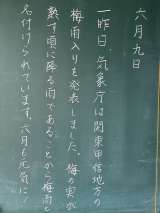 六月九日
一昨日、気象庁は関東甲信地方の
梅雨入りを発表しました。梅の実が
熟す頃に降る雨であることから梅雨と
名付けられています。六月も元気に!